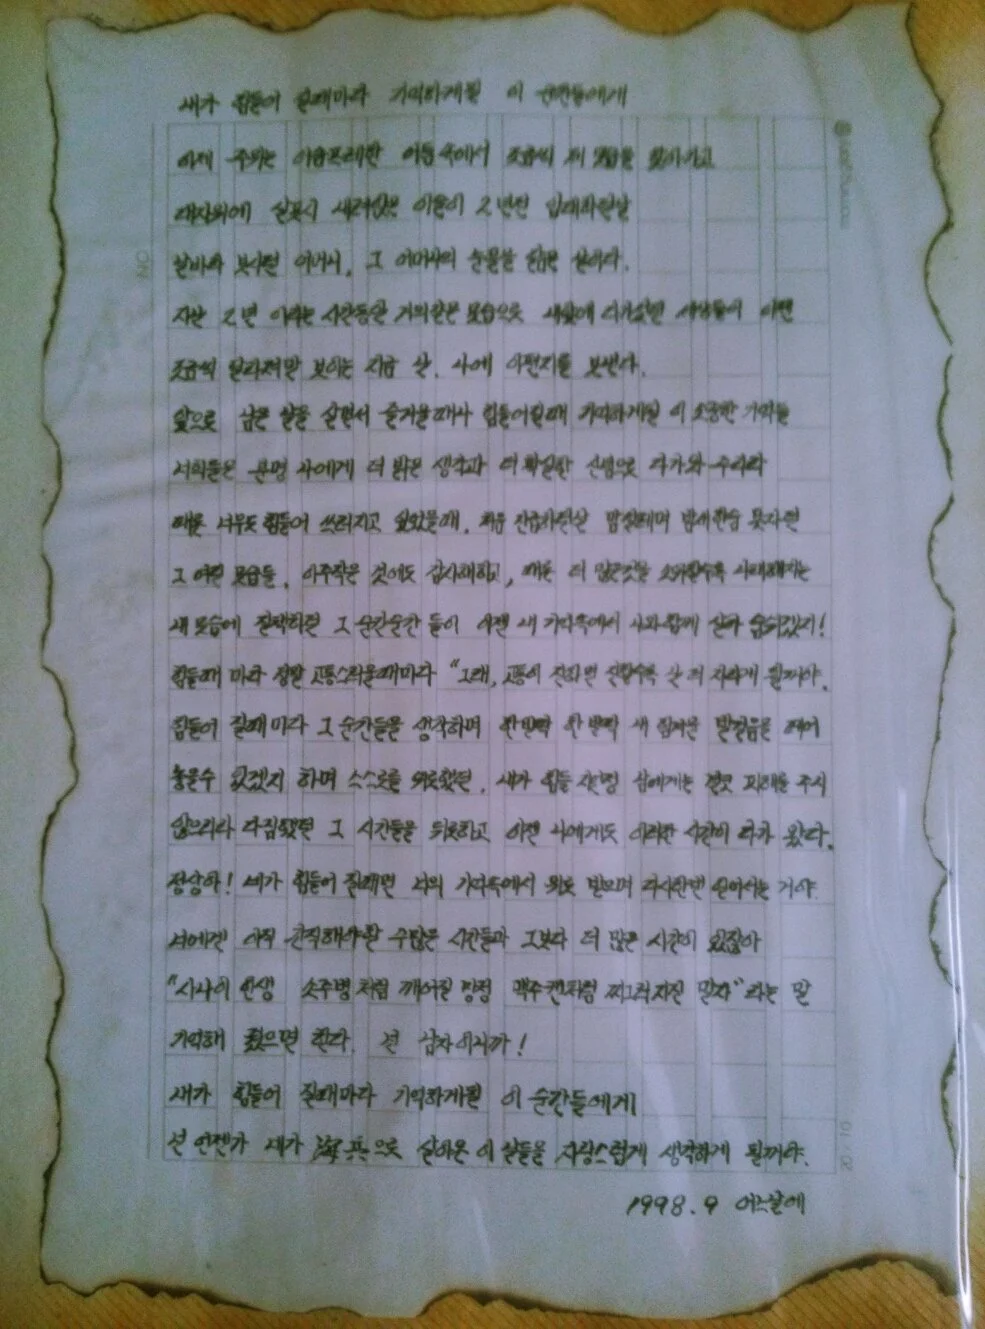 내가 힘들어 질때마다 기억하게될 이 순간들에게
이제 주위는 어슴프레한 어둠속에서 조금씩 제 모습을 찾아가고
살며시 내려앉은 이슬이 2년전 입대하던날
날바라 보시던 어머니. 그 어머니의 눈물을 닮은 날이다.
지난 2년 이라는 시간동안 거의같은 모습으로 내앞에 다가섰던 세상들이 이젠
조금씩 달라져만 보이는 지금 난. 나에 이편지를 보낸다.
앞으로 남은 날을 살면서 즐거울때나 힘들어질때 기억하게될 이 소중한 기억들
너희들은 분명 나에게 더 밝은 생각과 더 확실한 신념으로 다가와 주리라
때론 너무도 힘들어 쓰러지고 싶었을때. 처음 진급하던날 밤참 한숨 못자던
그 여린 모습들. 아주작은 것에도 감사해하고, 때론 더 많은것을 나태해지는
내 모습에 질책하던 그 순간순간 들이 이젠 내 기억속에서 나와 함께 살아 숨쉬겠지!
힘들때 마다 정말 고통스러울때마다 "그래, 고통이 진하면 진할수록 난 더 자라게 될꺼야.
힘들어 질때마다 그 순간들을 생각하며 한발짝 한발짝 내 힘겨운 발걸음을 떼어
놓을수 있겠지 하며 스스로를 위로했던. 내가 힘들 지언정 남에게는 결코 피해를 주지
않으리라 다짐했던 그 시간들을 뒤로하고 이젠 나에게도 이러한 시간이 다가 왔다.
정상아! 네가 힘들어 질때면 너의 기억속에서 위로 받으며 다시한번 일어서는 거야.
너에겐 아직 간직해야할 수많은 시간들과 그보다 더 많은 시간이 있잖아
"사나이 인생 소주병처럼 깨어질 망정 맥주캔처럼 찌그러지진 말자"라는 말
기억해 줬으면 한다. 넌 남자이니까!
내가 힘들어 질때마다 기억하게될 이 순간들에게
넌 언젠가 내가 海兵으로 살아온 이 날들을 자랑스럽게 생각하게 될꺼야.
1998. 9 어느날에